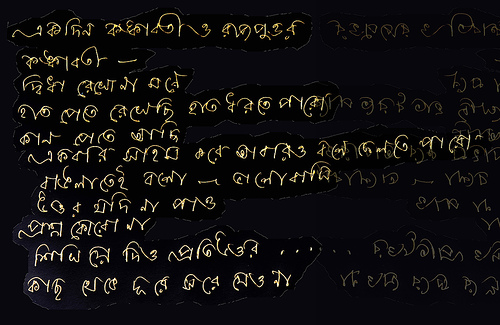 একদিন কঙ্কাবতী ও রাজপুত্তুর
কঙ্কাবতী —
দ্বিধা রেখোনা মনে
হাত পেতে রেখেছি হাত ধরতে পারো
কান পেতে আছি
একবার সাহস করে আবারও বলে ফেলতে পারো
বাংলাতেই বলো — ভালোবাসি
উত্তর যদি না পাও
প্রশ্ন কোরো না
দিও প্রতিউত্তর ......
কাছ থেকে দূরে সরে যেও না